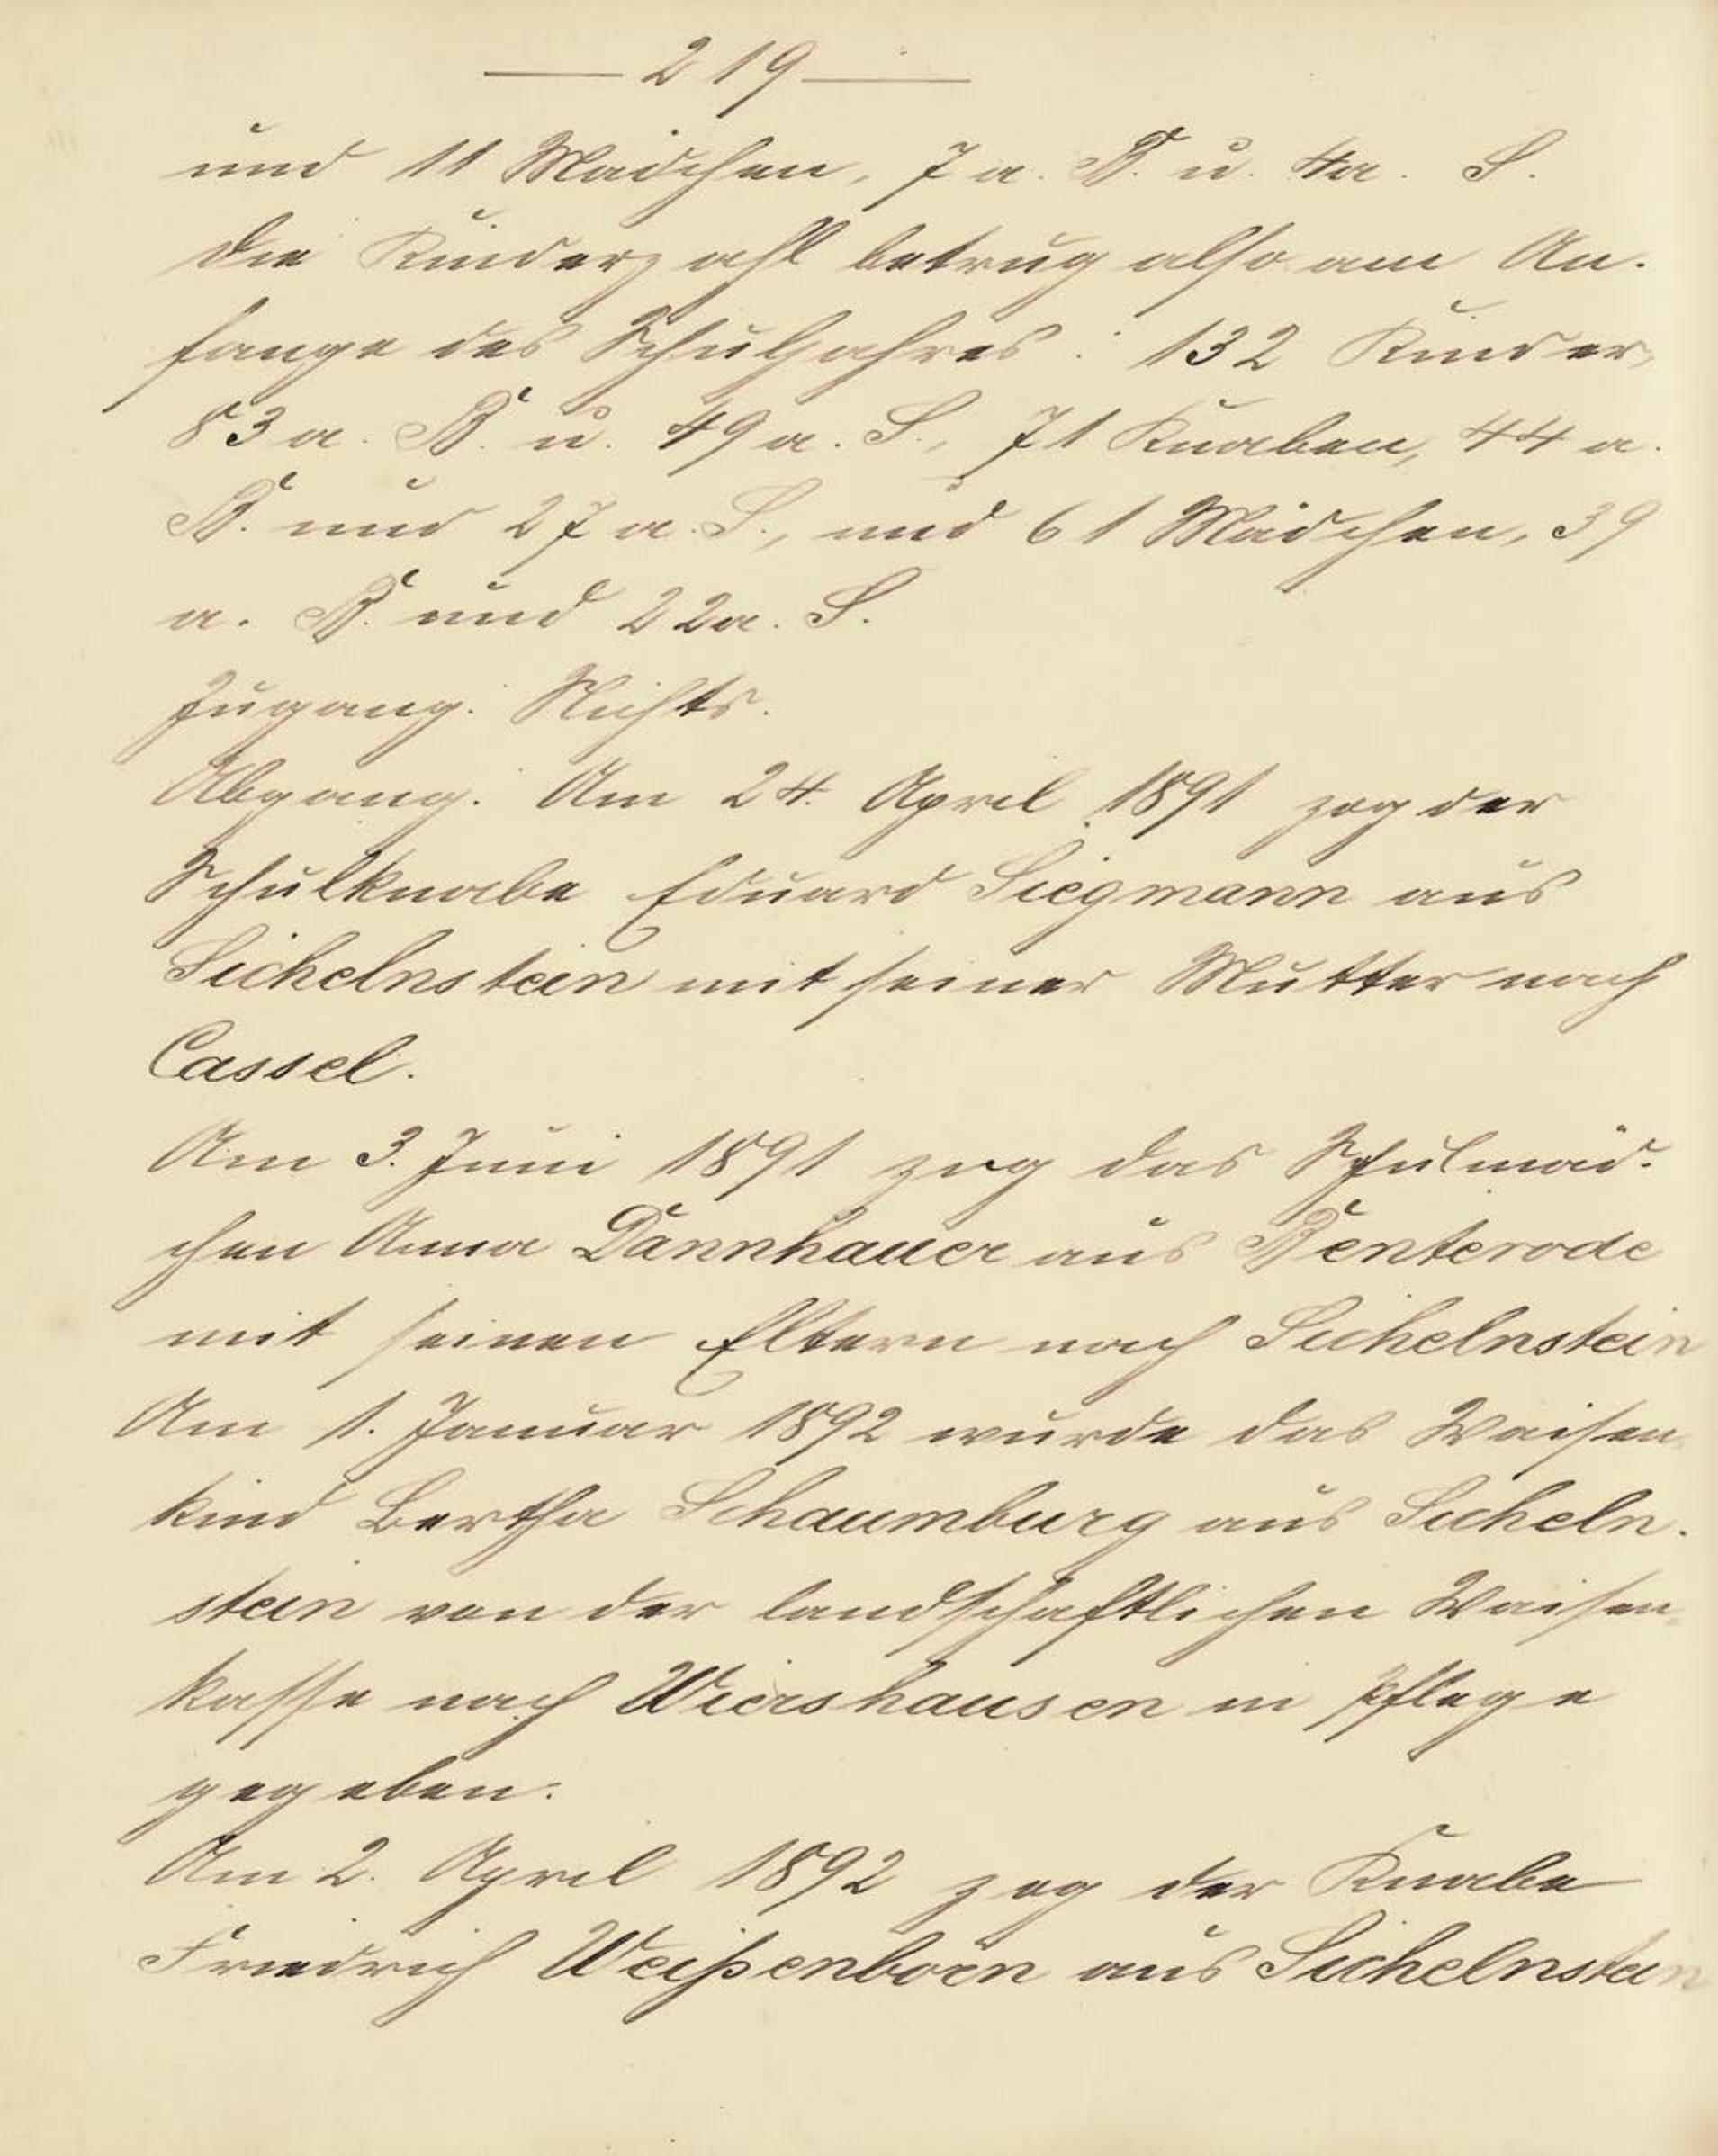 — 219 —
und 11 Mädchen, 7 a. B. u. 4 a. S.
Die Kinderzahl betrug also am An-
fange des Schuljahres: 132 Kinder,
83 a. B. u. 49 a. S., 71 Knaben, 44 a.
B. und 27 a. S., und 61 Mädchen, 39
a. B. und 22 a. S.
Zugang: Nichts.
Abgang: Am 24. April 1891 zog der
Schulknabe Eduard Siegmann aus
Sichelnstein mit seiner Mutter nach
Cassel.
Am 3. Juni 1891 zog das Schulmäd-
chen Anna Dannhauer aus Benterode
mit seinen Eltern nach Sichelnstein
Am 1. Januar 1892 wurde das Waisen-
kind Bertha Schaumburg aus Sicheln-
stein von der landschaftlichen Waisen-
kasse nach Wiershausen in Pflege
gegeben.
Am 2. April 1892 zog der Knabe
Friedrich Weißenborn aus Sichelnstein